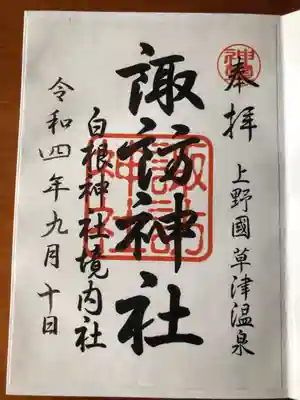 奉拝
上野國草津温泉
諏訪神社
諏訪神社
白根神社境内社
令和四年九月十日